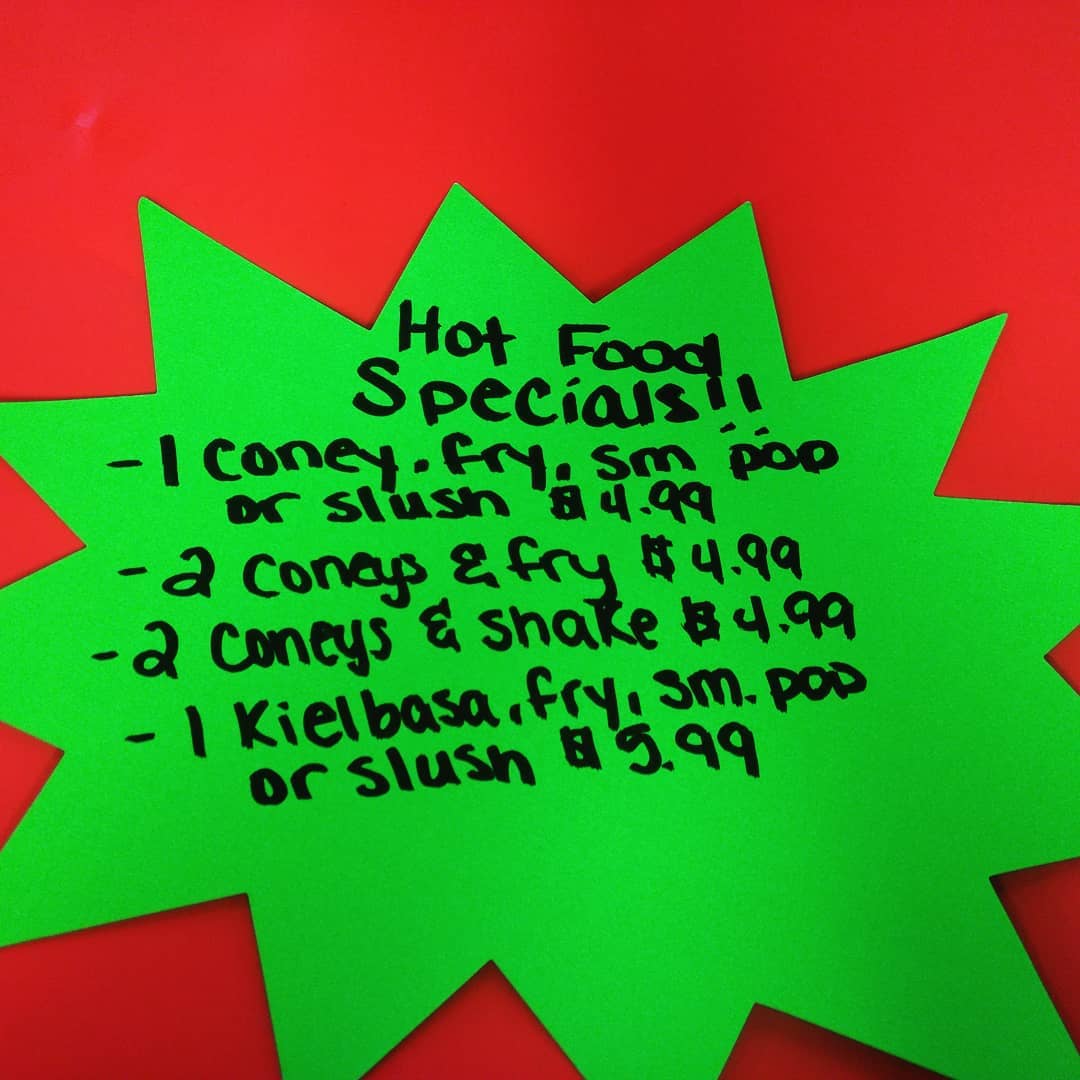 Hot Food
Specials!!
- 1 coney, fry, sm pop
or slush $4.99
- 2 coneys & fry $4.99
- 2 coneys & shake $4.99
- 1 Kielbasa, fry, sm. pop
or slush $5.99